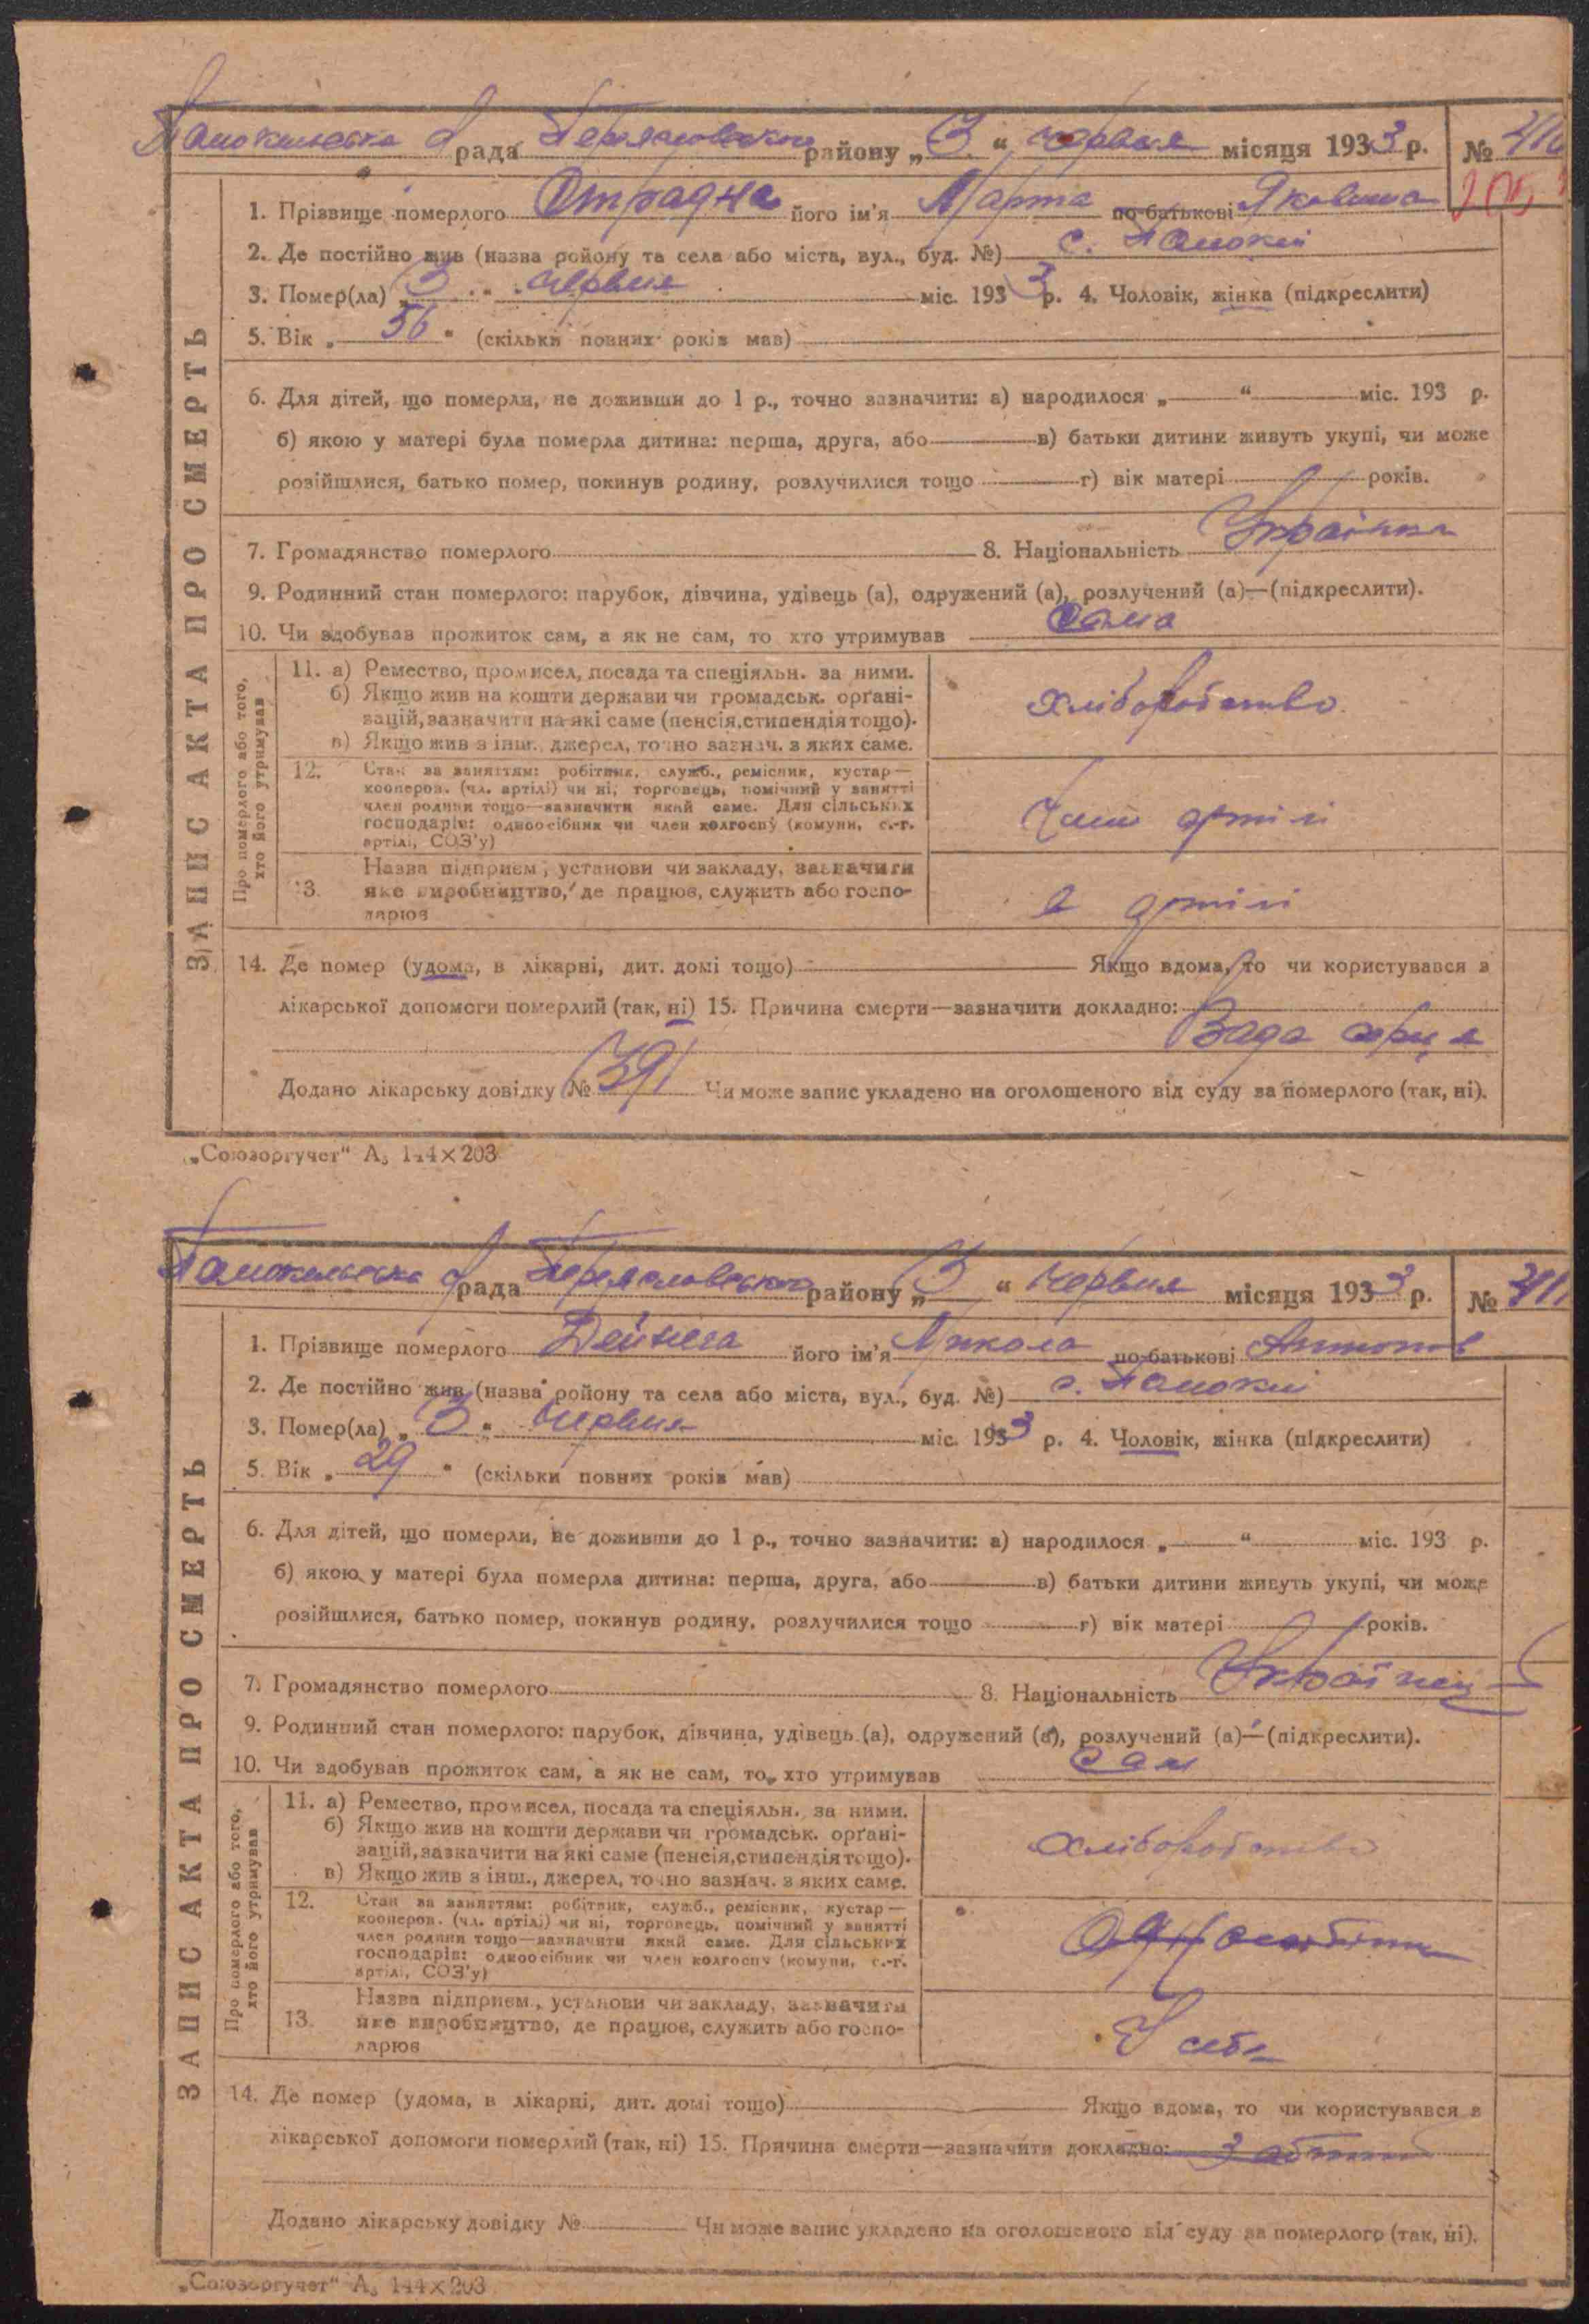 рада Переяславського району „3“ червня місяця 1933 р. №
1. Прізвище померлого Отрадна його ім'я Марта по-батькові Яковина
2. Де постійно жив (назва ройону та села або міста, вул., буд. №) с. Помоклі
3. Помер(ла) „3“ червня міс. 1933 р. 4. Чоловік, жінка (підкреслити)
5. Вік „56“ (скільки повних років мав)
6. Для дітей, що померли, не доживши до 1 р., точно зазначити: а) народилося „ “ міс. 193 р.
б) якою у матері була померла дитина: перша, друга, або в) батьки дитини живуть укупі, чи може
розійшлися, батько помер, покинув родину, розлучилися тощо г) вік матері років.
7. Громадянство померлого 8. Національність Українка
9. Родинний стан померлого: парубок, дівчина, удівець (а), одружений (а), розлучений (а)—(підкреслити).
10. Чи здобував прожиток сам, а як не сам, то хто утримував Сама
ЗАПИС АКТА ПРО СМЕРТЬ
Про померлого або того,
хто його утримував
11. а) Ремество, промисел, посада та спеціяльн. за ними.
б) Якщо жив на кошти держави чи громадськ. органі-
зацій, зазначити на які саме (пенсія, стипендія тощо).
в) Якщо жив з інш., джерел, точно зазнач. з яких саме.
хліборобство
12. Стан за заняттям: робітник, служб., ремісник, кустар—
кооперов. (чл. артілі) чи ні, торговець, помічний у занятті
член родини тощо—зазначити який саме. Для сільських
господарів: одноосібник чи член колгоспу (комуни, с.-г.
артілі, СОЗ'у)
Член артілі
13. Назва підприєм., установи чи закладу, зазначити
яке виробництво, де працює, служить або госпо-
дарює
в артілі
14. Де помер (удома, в лікарні, дит. домі тощо) Якщо вдома, то чи користувався з
лікарської допомоги померлий (так, ні) 15. Причина смерти—зазначити докладно:
Вада серця
Додано лікарську довідку № 391 Чи може запис укладено на оголошеного від суду за померлого (так, ні).
„Союзоргучет“ А₅ 144×203
рада Переяславського району „3“ червня місяця 1933 р. №
1. Прізвище померлого Дейнега його ім'я Микола по-батькові Антонов
2. Де постійно жив (назва ройону та села або міста, вул., буд. №) с. Помоклі
3. Помер(ла) „3“ червня міс. 1933 р. 4. Чоловік, жінка (підкреслити)
5. Вік „29“ (скільки повних років мав)
6. Для дітей, що померли, не доживши до 1 р., точно зазначити: а) народилося „ “ міс. 193 р.
б) якою у матері була померла дитина: перша, друга, або в) батьки дитини живуть укупі, чи може
розійшлися, батько помер, покинув родину, розлучилися тощо г) вік матері років.
7. Громадянство померлого 8. Національність Українец
9. Родинний стан померлого: парубок, дівчина, удівець (а), одружений (а), розлучений (а)—(підкреслити).
10. Чи здобував прожиток сам, а як не сам, то хто утримував сам
ЗАПИС АКТА ПРО СМЕРТЬ
Про померлого або того,
хто його утримував
11. а) Ремество, промисел, посада та спеціяльн. за ними.
б) Якщо жив на кошти держави чи громадськ. органі-
зацій, зазначити на які саме (пенсія, стипендія тощо).
в) Якщо жив з інш., джерел, точно зазнач. з яких саме.
хліборобство
12. Стан за заняттям: робітник, служб., ремісник, кустар—
кооперов. (чл. артілі) чи ні, торговець, помічний у занятті
член родини тощо—зазначити який саме. Для сільських
господарів: одноосібник чи член колгоспу (комуни, с.-г.
артілі, СОЗ'у)
13. Назва підприєм., установи чи закладу, зазначити
яке виробництво, де працює, служить або госпо-
дарює
У себе
14. Де помер (удома, в лікарні, дит. домі тощо) Якщо вдома, то чи користувався з
лікарської допомоги померлий (так, ні) 15. Причина смерти—зазначити докладно:
Додано лікарську довідку № Чи може запис укладено на оголошеного від суду за померлого (так, ні).
„Союзоргучет“ А₅ 144×203